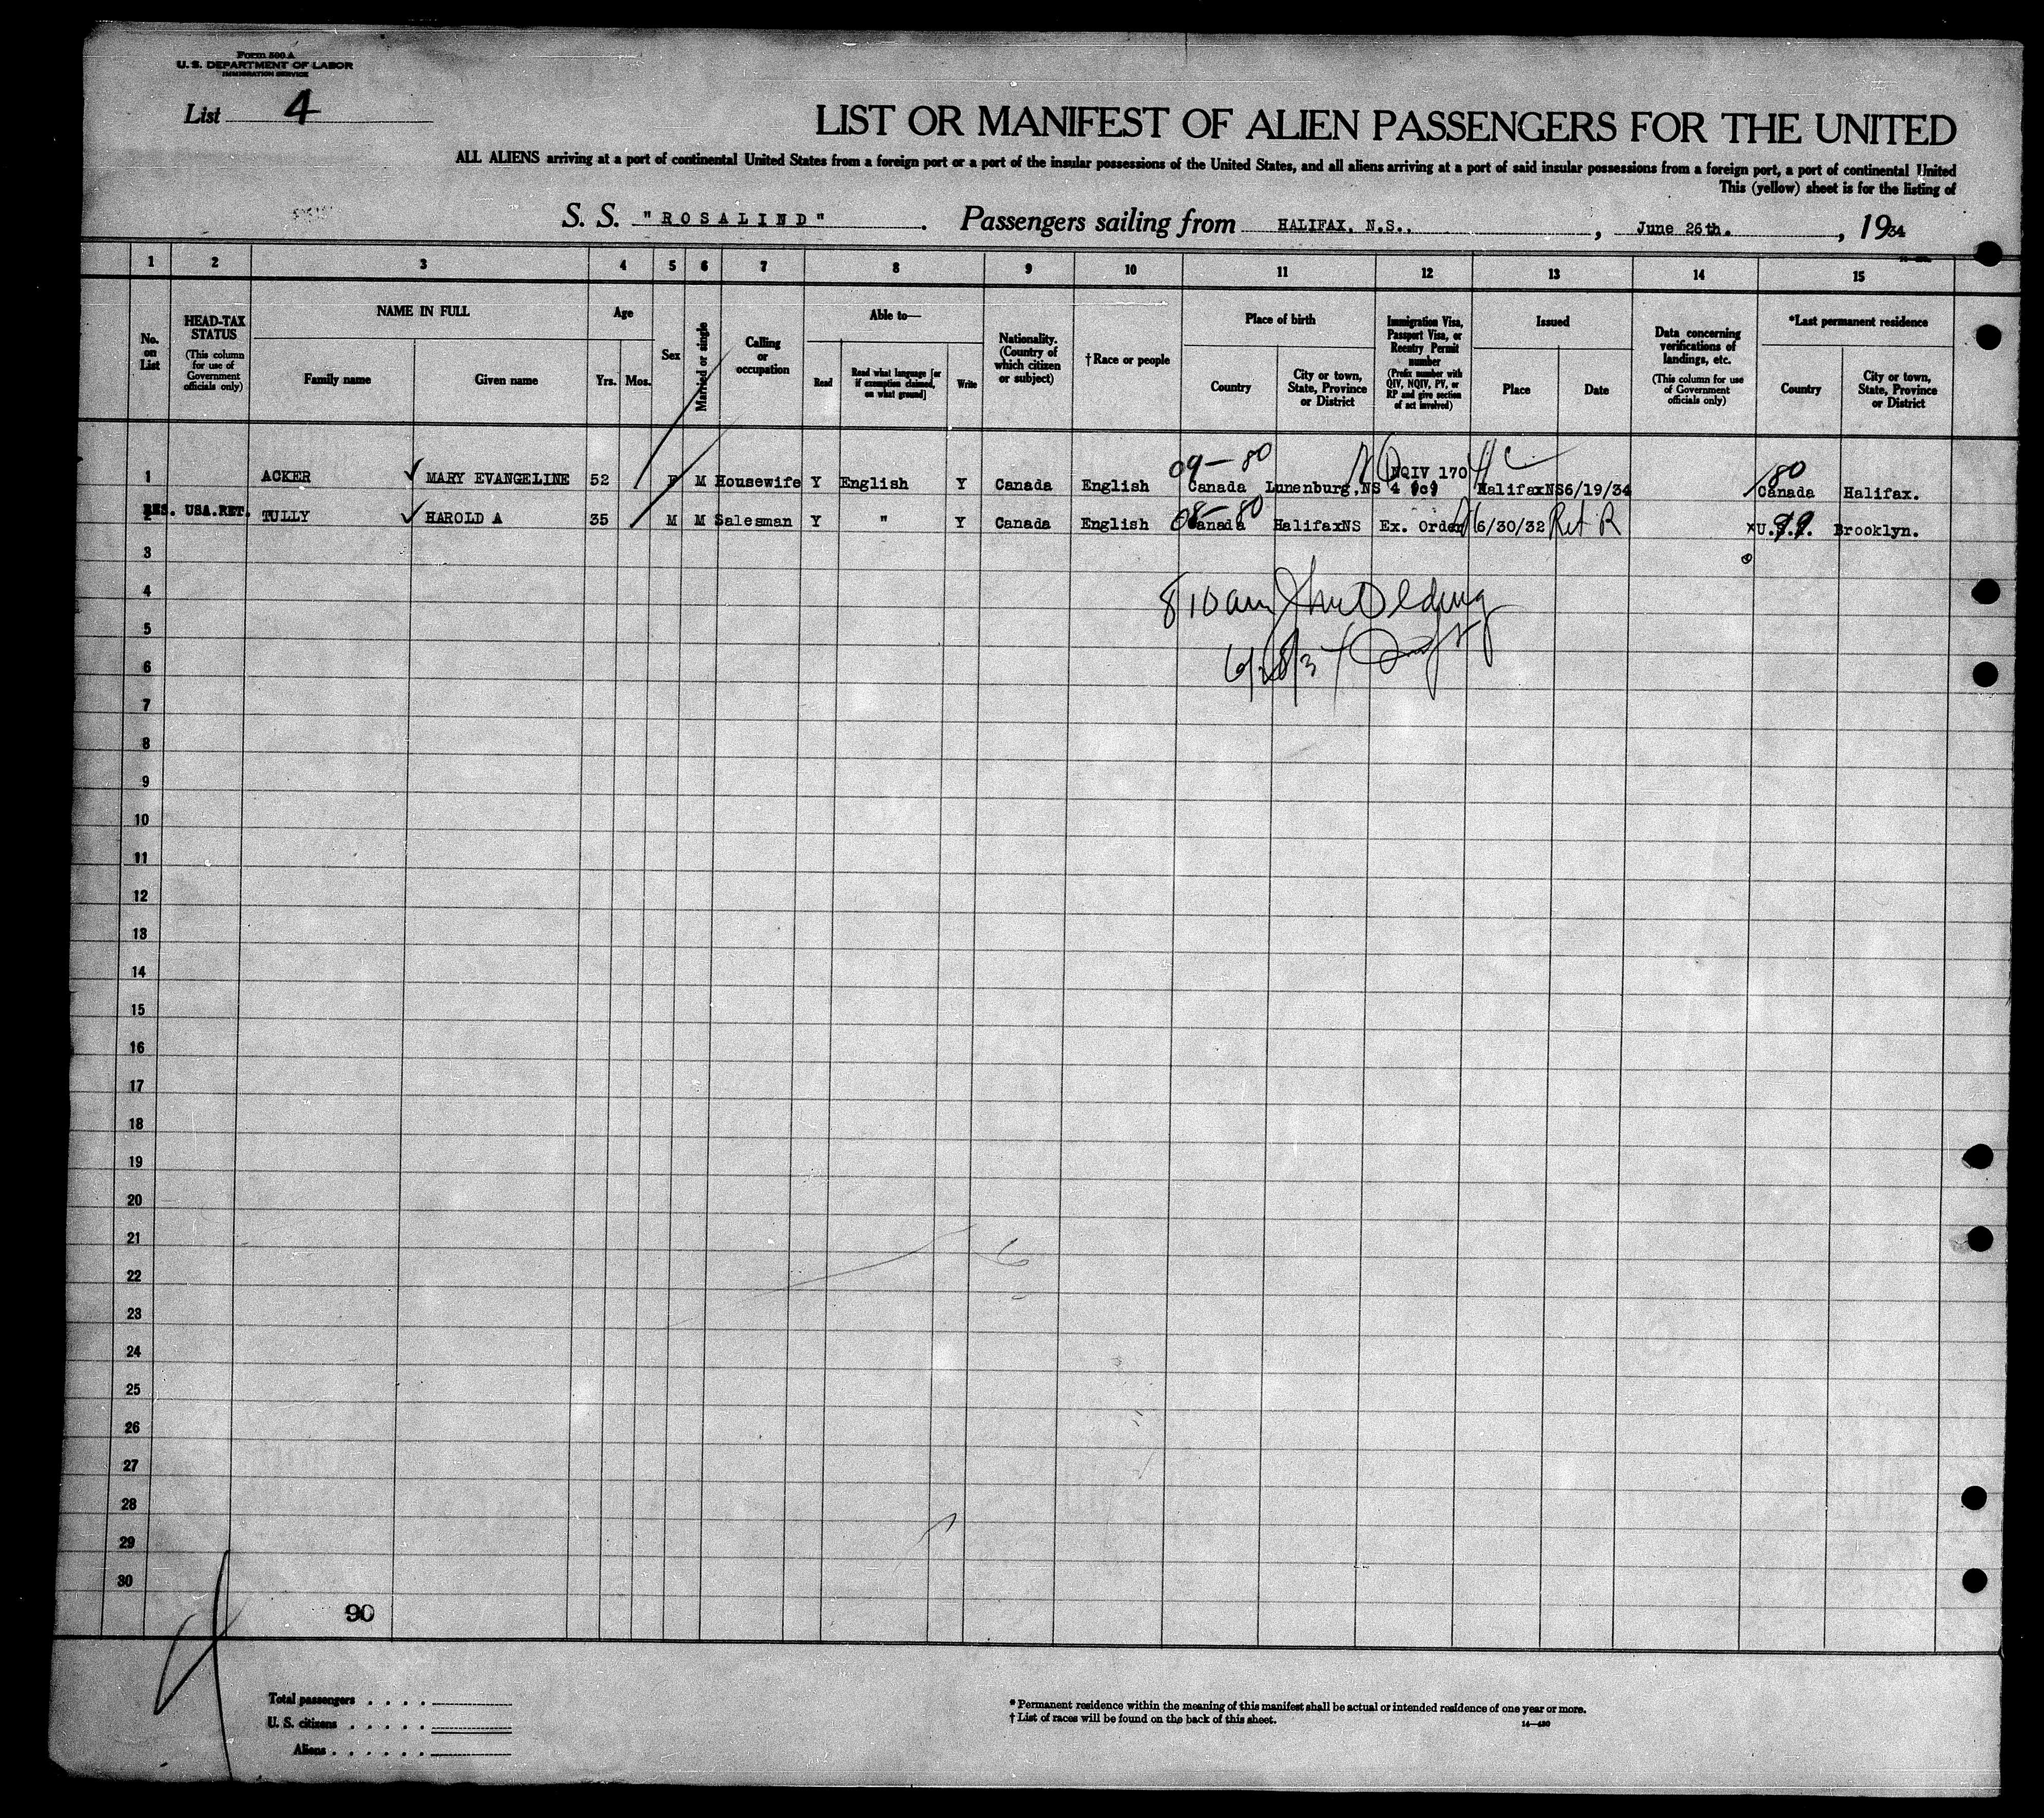 Form 500 A
U. S. DEPARTMENT OF LABOR
IMMIGRATION SERVICE
List 4
LIST OR MANIFEST OF ALIEN PASSENGERS FOR THE UNITED
ALL ALIENS arriving at a port of continental United States from a foreign port or a port of the insular possessions of the United States, and all aliens arriving at a port of said insular possessions from a foreign port, a port of continental United
This (yellow) sheet is for the listing of
S. S. "ROSALIND". Passengers sailing from HALIFAX, N.S., , June 26th. , 1934
1 2 3 4 5 6 7 8 9 10 11 12 13 14 15
No. on List
HEAD-TAX STATUS (This column for use of Government officials only)
NAME IN FULL
Family name
Given name
Age
Yrs. Mos.
Sex
Married or single
Calling or occupation
Able to—
Read
Read what language [or if exemption claimed, on what ground]
Write
Nationality. (Country of which citizen or subject)
†Race or people
Place of birth
Country
City or town, State, Province or District
Immigration Visa, Passport Visa, or Reentry Permit number (Prefix number with QIV, NQIV, PV, or RP and give section of act involved)
Issued
Place
Date
Data concerning verifications of landings, etc. (This column for use of Government officials only)
*Last permanent residence
Country
City or town, State, Province or District
09-80 NQIV 170 80
1 ACKER ✓ MARY EVANGELINE 52 F M Housewife Y English Y Canada English Canada Lunenburg, NS 4 HalifaxNS 6/19/34 Canada Halifax.
2 RES. USA. RET. TULLY ✓ HAROLD A 35 M M Salesman Y " Y Canada English 08-80 Canada HalifaxNS Ex. Order 6/30/32 Ret R x U.S. 99 Brooklyn.
3
4 810 am
5
6 6/28/34
7
8
9
10
11
12
13
14
15
16
17
18
19
20
21
22
23
24
25
26
27
28
29
30
90
Total passengers . . . .
U. S. citizens . . . . .
Aliens . . . . . .
* Permanent residence within the meaning of this manifest shall be actual or intended residence of one year or more.
† List of races will be found on the back of this sheet.
14—430